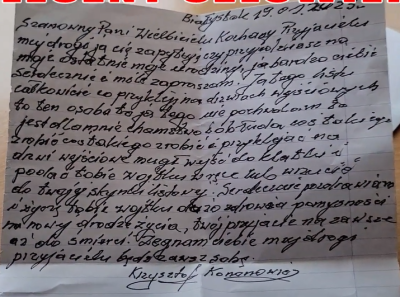 Białystok 19.01.2023
Szanowny Pani Wielbicielu Kochany Przyjacielu
mój drogi ja cię zapytuję czy przyjdziesz na
moje ostatnie moje urodziny ja bardzo ciebie
serdecznie i miło zapraszam. Ta tego listu
całkowicie co przykleił na drzwiach wyjściowych
to ten osoba to ja tego nie pochwalam to
jest dla mnie chamstwo obłuda coś takiego
zrobić coś takiego zrobić i przyklejać na
drzwi wyjściowe mógł wyjść do klatki i
podać tobie wojtku w ręce lub wrzucić
do twojej skrynki listowej. Serdecznie pozdrawiam
i życzę tobie wojtku dużo zdrowia pomyślności
na nowej drodze życia, twój przyjaciel na zawsze
aż do śmierci. Żegnam ciebie mój drogi
przyjacielu bądź zawsze sobą.
Krzysztof Kononowicz